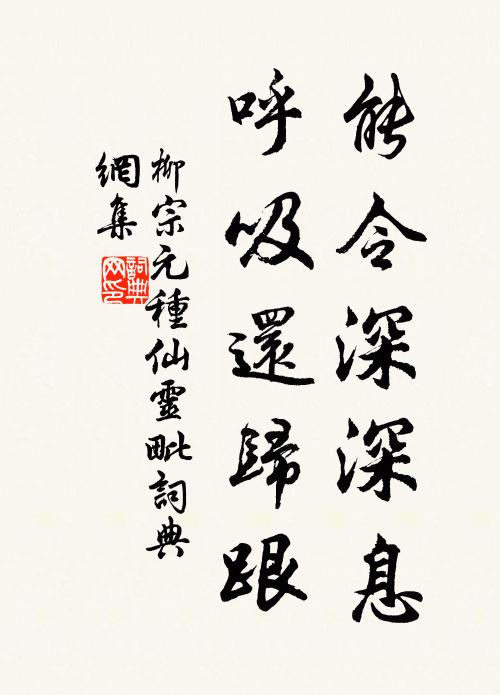 能令深深息
呼吸還歸跟
柳宗元種仙靈毗詞典
網集
詞典網印